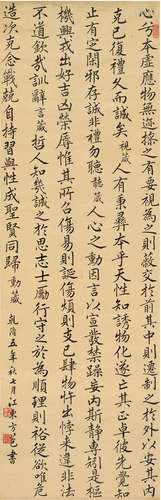 心兮本虛應物無迹操之有要視為之則蔽交於前其中則遷制之於外以安其內
克己復禮久而誠矣視箴人有秉彝本乎天性知誘物化遂亡其正卓彼先覺
止有定閑邪存誠非禮勿聽聽箴人心之動因言以宣發禁躁妄內斯靜專矧是樞
機興戎出好吉凶榮辱惟其所召傷易則誕傷煩則支己肆物忤出悖來違非法
不道欽哉訓辭言箴哲人知幾誠之於思志士勵行守之於為順理則裕從欲惟危
造次克念戰兢自持習與性成聖賢同歸動箴乾隆五年秋月江東方苞書